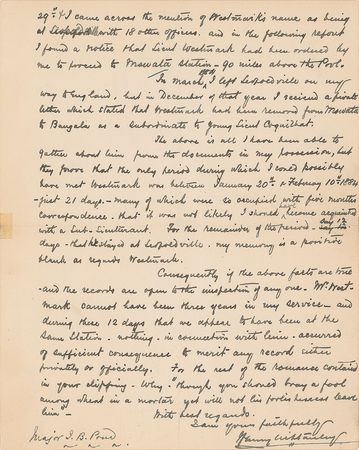 29th & I came across the mention of Westmark's name as being
at Leopoldville with 18 other officers. and in the following report
I found a notice that Lieut Westmark had been ordered by
me to proceed to Mswata Station - 90 miles above the Pool.
In March, 1884 I left Leopoldville on my
way to England, but in December of that year I received a private
letter which stated that Westmark had been removed from Mswata
to Bangala as a subordinate to young Lieut Coquilhat.
The above is all I have been able to
gather about him from the documents in my possession, but
they prove that the only period during which I could possibly
have met Westmark was between January 20th & Febry 10th 1884
- just 21 days - many of which were so occupied with five months
correspondence - that it was not likely I should have become acquainted
with a Sub-Lieutenant. For the remainder of the period - say 12
days - that he stayed at Leopoldville. my memory is a positive
blank as regards Westmark.
Consequently if the above facts are true
- and the records are open to the inspection of any one - Mr West-
mark cannot have been three years in my service - and
during these 12 days that we appear to have been at the
same Station - nothing - in connection with him - occurred
of sufficient consequence to merit any record either
privately or officially. For the rest of the romance contained
in your clipping - Why - "though you should bray a fool
among wheat in a mortar yet will not his foolishness leave
him" -
With best regards.
I am yours faithfully
Henry M Stanley
Major J. B. Pond